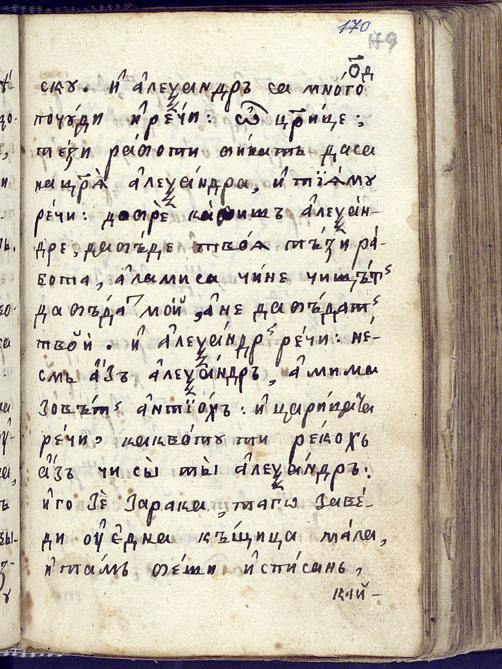 170
119
о҃д
скꙋ. и҆ а҆леѯандръ са мно́го
почꙋ́ди и҆ ре́чи: ѽ цр҃ице:
те́зи ра́боти викатъ даса
на цр҃ѧ̀ а҆леѯа́ндра, и҆ тїѧ́мꙋ
ре́чи: добре̂ ка́виш а҆леѯа́н-
дре, давъде твоѧ тъ́зи ра́-
бота, а҆лами са чи́не чищѣ́т
давъда́т мо́й, а҆не давъ́дат
тво́й. и҆ а҆леѯа́ндр ре́чи: не-
смь а҆́зъ а҆леѯа́ндръ, а҆ мима
зовѣ́т а҆нтїо́хъ: и҆ цари́цата
ре́чи, какво́тꙋ ти ре́кохъ
а҆́зъ чи сы̀ ты̀ а҆леѯа́ндръ:
и҆го зе̂ зарака, тагѡ заве́-
ди оу҆ е҆дна къ́щица ма́ла,
и҆ та́мъ веши и҆спи́санъ,
кай-